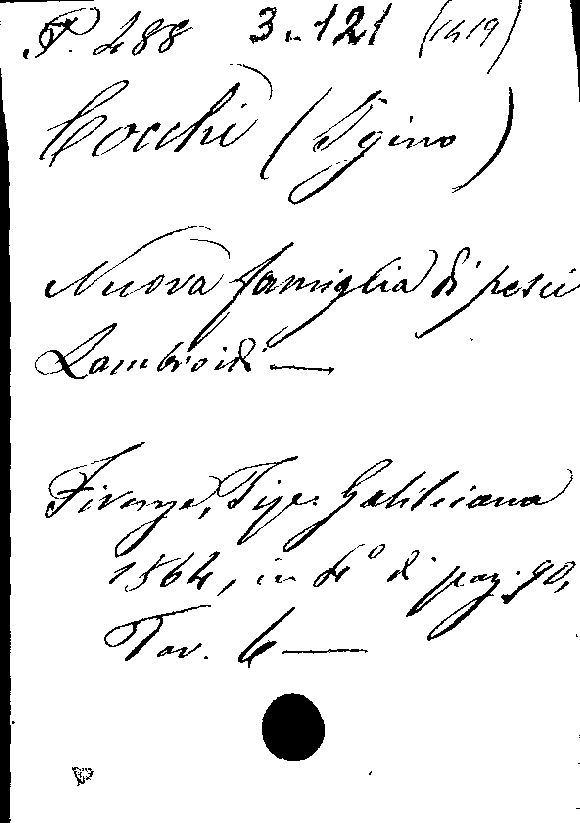 P. 488 3. 121 (1419)
Cocchi (Igino)
Nuova famiglia di pesci
Lambroidi —
Firenze, Tipr. Galileiana
1864, in 4° di pag. 90,
Tav. 6 —